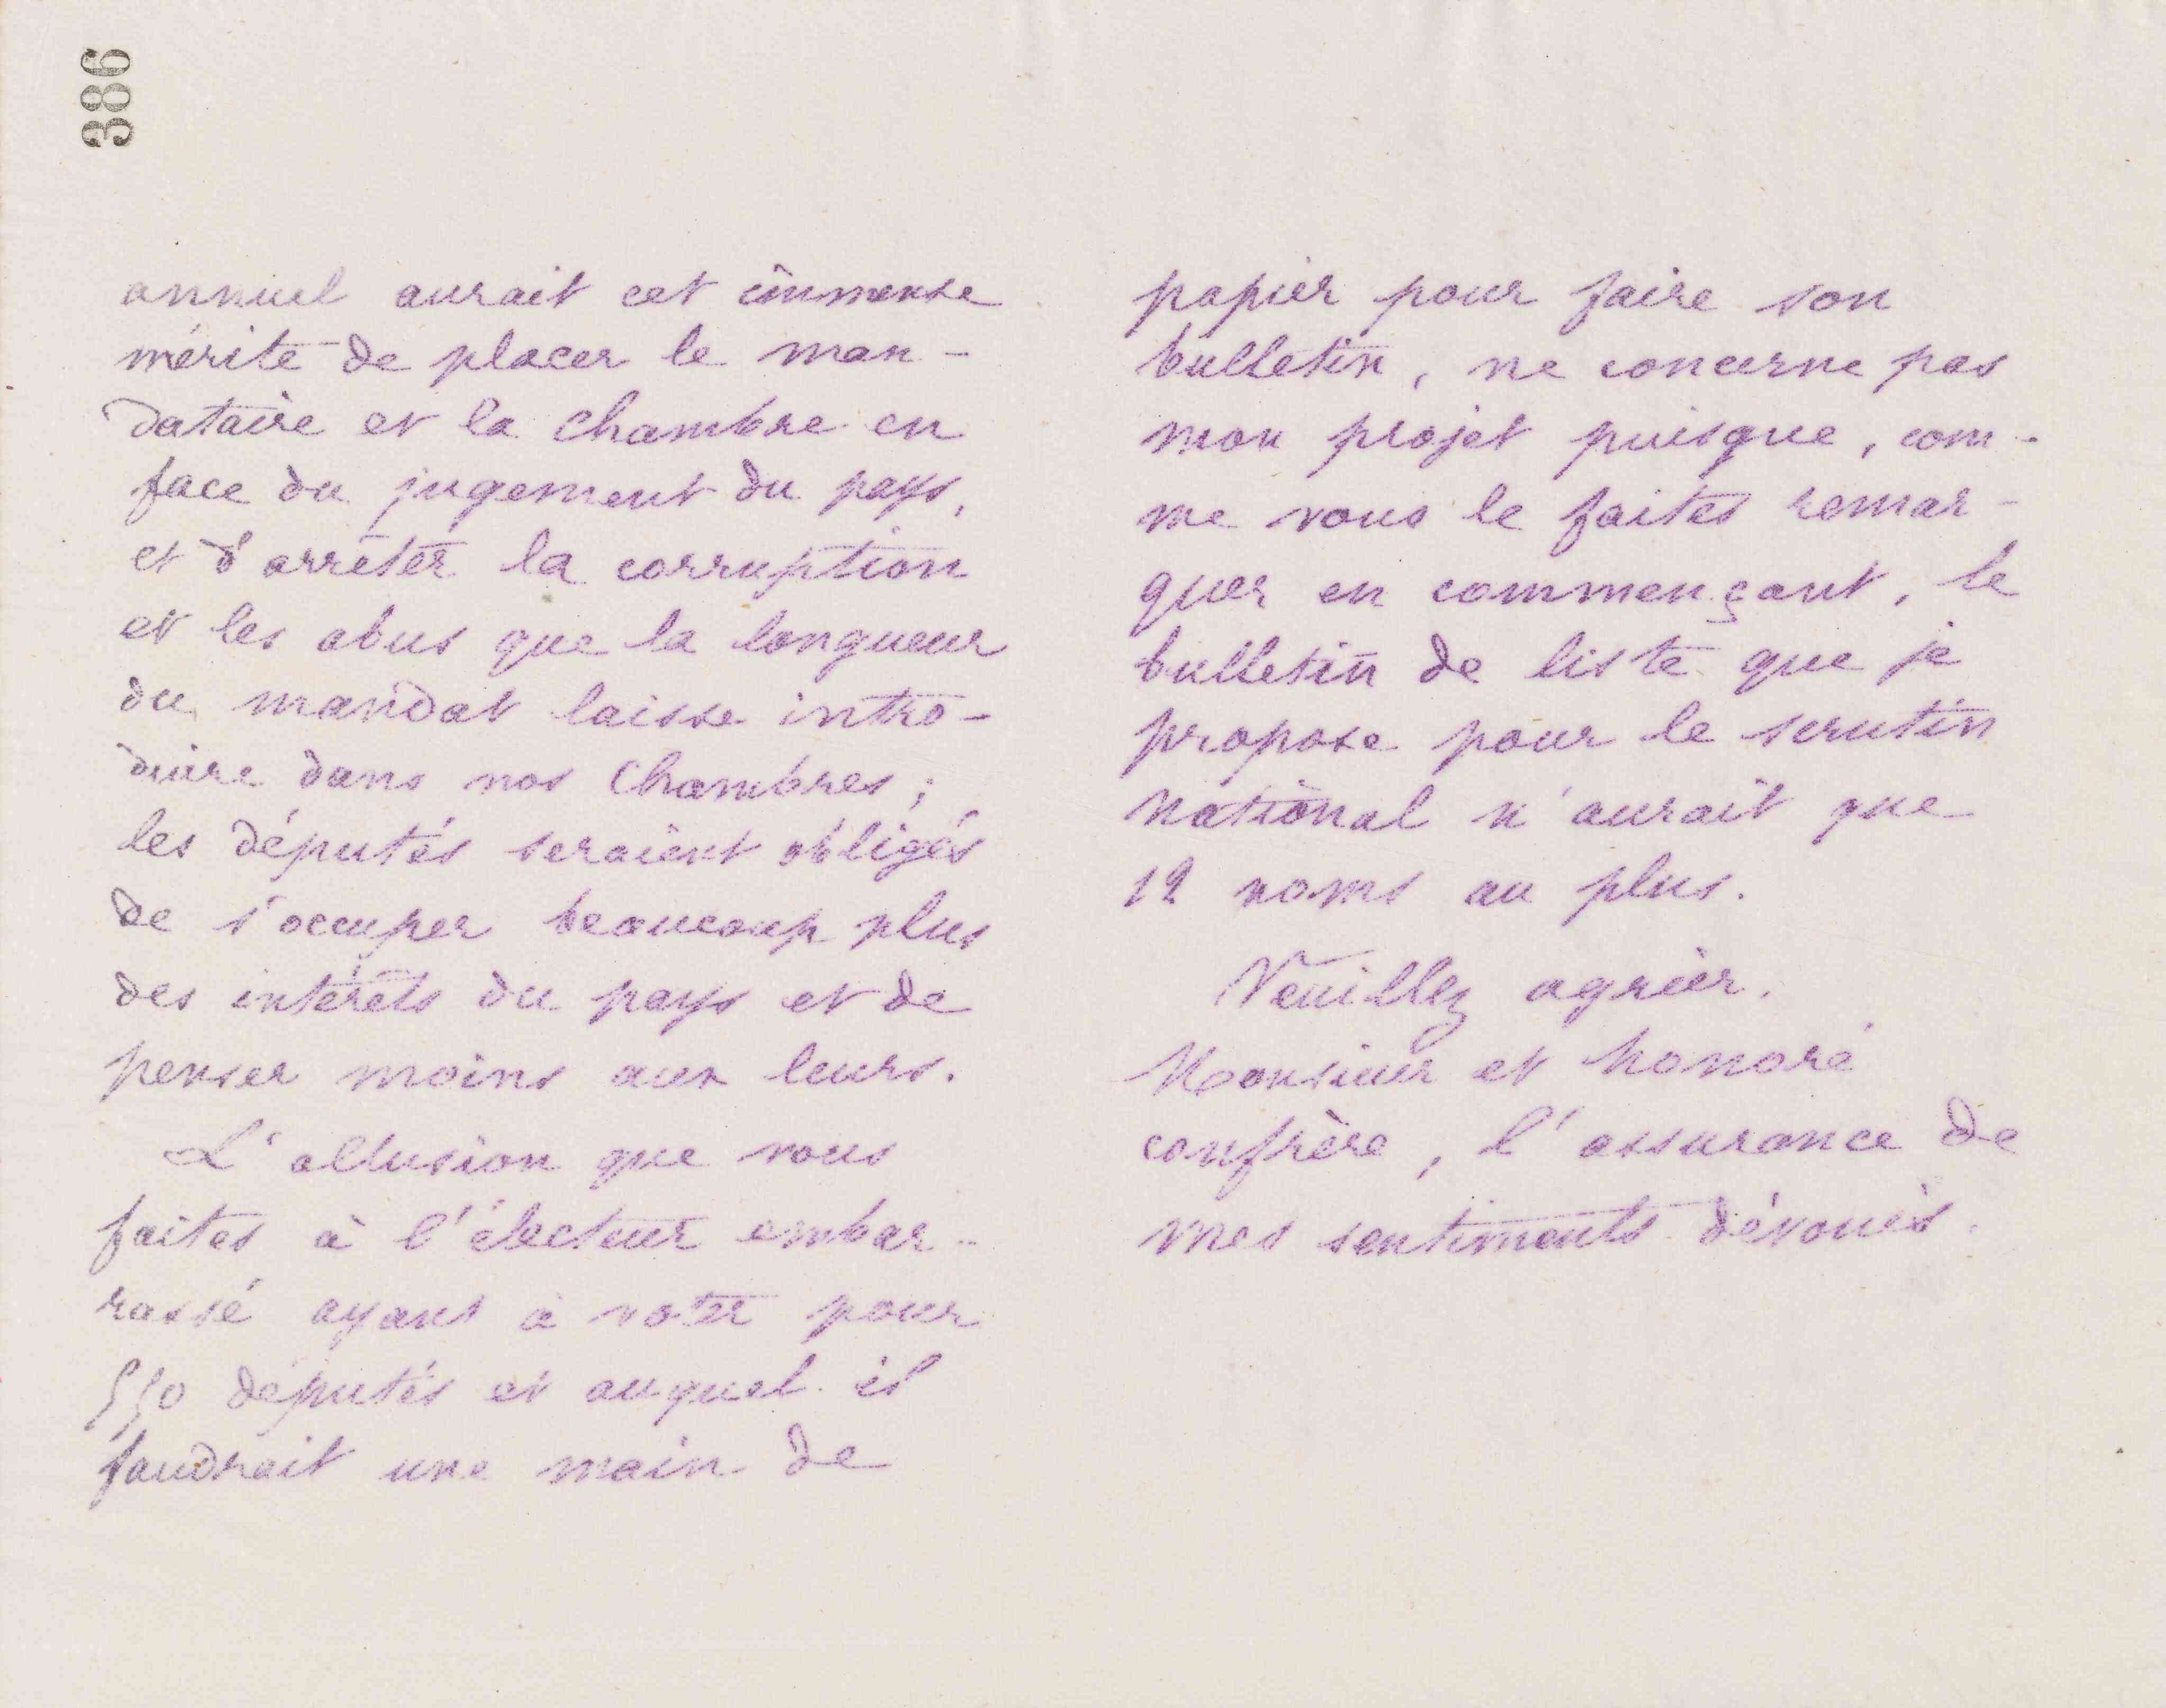 386
annuel aurait cet immense
mérite de placer le man-
dataire et la chambre en
face du jugement du pays,
et d'arrêter la corruption
et les abus que la longueur
du mandat laisse intro-
duire dans nos Chambres ;
les députés seraient obligés
de s'occuper beaucoup plus
des intérêts du pays et de
penser moins aux leurs.
L'allusion que vous
faites à l'électeur embar-
rassé ayant à voter pour
550 députés et auquel il
faudrait une main de
papier pour faire son
bulletin, ne concerne pas
mon projet puisque, com-
me vous le faites remar-
quer en commençant, le
bulletin de liste que je
propose pour le scrutin
national n'aurait que
12 noms au plus.
Veuillez agréer,
Monsieur et honoré
confrère, l'assurance de
mes sentiments dévoués.